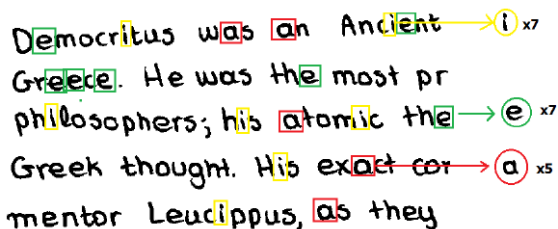 Democritus was an Ancient i x7
Greece. He was the most pr
philosophers; his atomic the e x7
Greek thought. His exact cor a x5
mentor Leucippus, as they